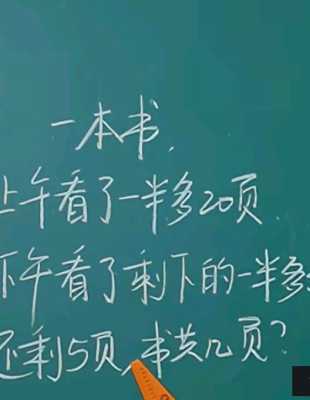 一本书,
上午看了一半多20页
下午看了剩下的一半多
还剩5页,书共几页?